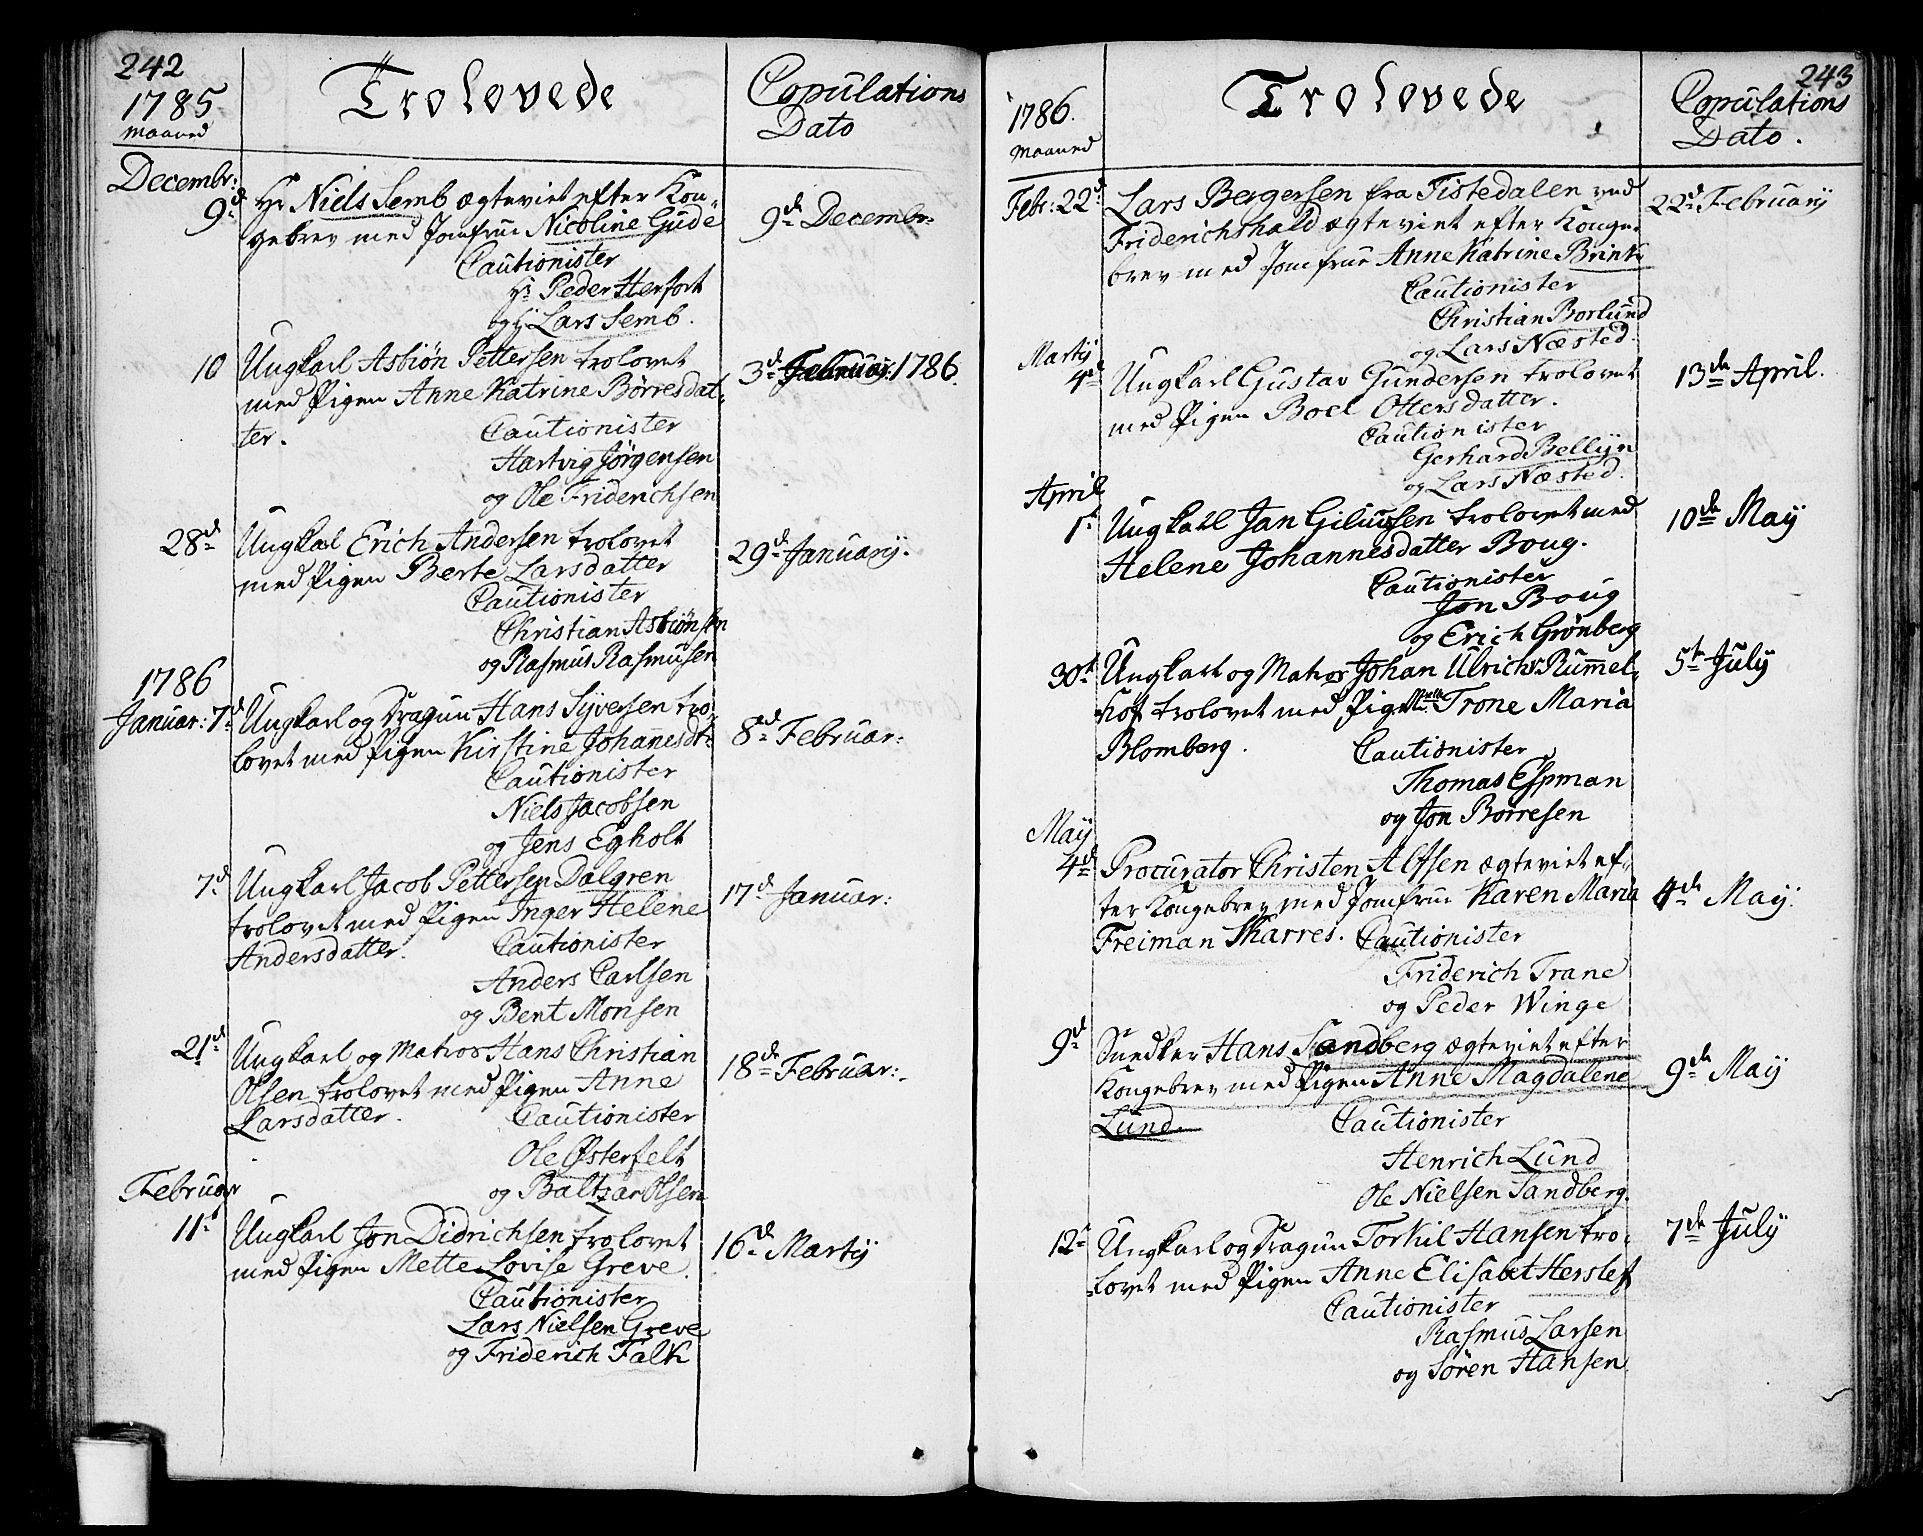 242
1785
Maaned
Trolovede
Copulations
Dato
Decembr:
9d
Hr Niels Semb ægteviet efter Kon-
gebrev med Jomfrue Nicoline Gude
9de Decembr:
Cautionister
Hr Peder Herfort
og Hr Lars Semb.
10
Ungkarl Asbiøn Pettersen trolovet
med Pigen Anne Katrine Børresdat-
ter.
3de Februar: 1786.
Cautionister
Hartvig Jørgensen
og Ole Friderichsen
28d
Ungkarl Erich Andersen trolovet
med Pigen Berte Larsdatter
29d Januarij.
Cautionister
Christian Asbiønsen
og Rasmus Rasmusen
1786
Januar: 7d
Ungkarl og Dragun Hans Syversen tro-
lovet med Pigen Kirstine Johannesdt:
8d Februar:
Cautionister
Niels Jacobsen
og Jens Egholt
7d
Ungkarl Jacob Pettersen Dalgren
trolovet med Pigen Inger Helene
Andersdatter.
17d Januar:
Cautionister
Anders Carlsen
og Bent Monsen
21d
Ungkarl og Matros Hans Christian
Olsen trolovet med Pigen Anne
Larsdatter.
18de Februar:
Cautionister
Ole Østerfelt
og Baltzar Olsen
Februar
11t
Ungkarl Jon Didrichsen trolovet
med Pigen Mette Lovise Greve.
16d Martij
Cautionister
Lars Nielsen Greve
og Friderich Falk
243
1786.
Maaned
Trolovede
Copulations
Dato.
Febr: 22d
Lars Bergersen fra Tistedalen ved
Friderichshald ægteviet efter Konge-
brev med Jomfrue Anne Katrine Brink
22d Februarij
Cautionister
Christian Borlund
og Lars Næsted.
Martij
4de
Ungkarl Gustav Gundersen trolovet
med Pigen Boel Ottersdatter.
13de April.
Cautionister
Gerhard Bellijn
og Lars Næsted.
April
1t
Ungkarl Jan trolovet med
Helene Johannesdatter Boug.
10de May
Cautionister
Jon Boug
og Erich Grønberg
30t
Ungkarl og Matros Johan Ulrichs Rummel-
hof trolovet med Trone Maria
Blomberg.
5te July
Cautionister
Thomas Espman
og Jon Børresen
May
4d
Procurator Christen Alfsen ægteviet ef-
ter Kongebrev med Jomfrue Karen Maria
Freiman Skarres.
4de May.
Cautionister
Friderich Trane
og Peder Winge
9d
Snedker Hans Sandberg ægteviet efter
Kongebrev med Pigen Anne Magdalene
Lund.
9de May
Cautionister
Henrich Lund
Ole Nielsen Sandberg.
12t
Ungkarl og Dragun Torkil Hansen tro-
lovet med Pigen Anne Elisabet Herslef
7de July
Cautionister
Rasmus Larsen
og Søren Hansen